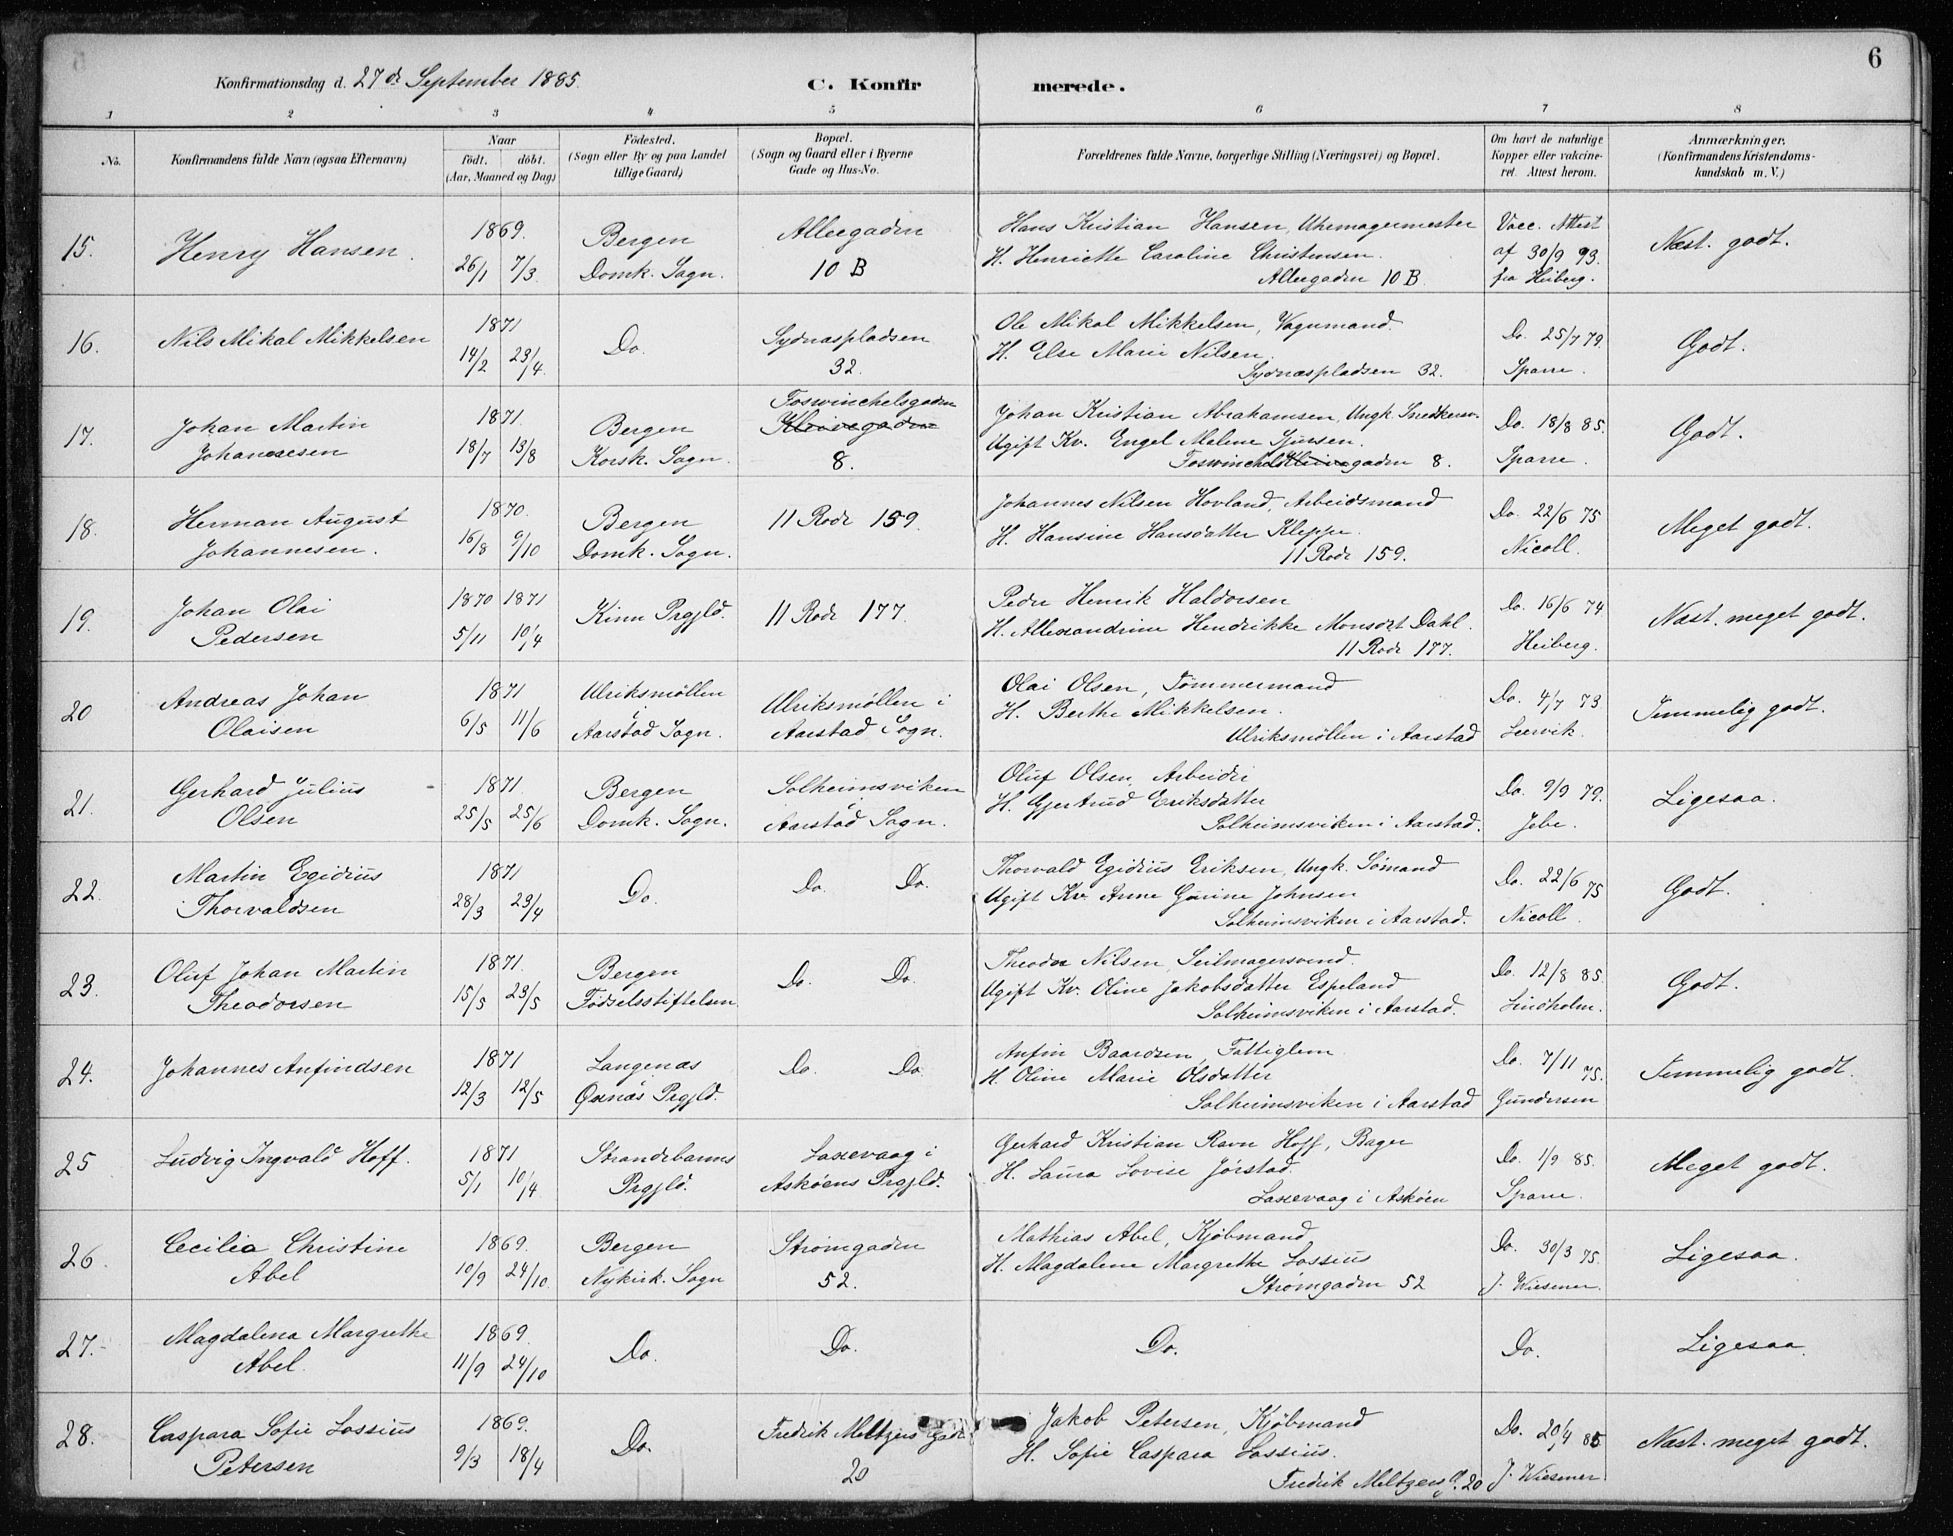 6
Konfirmationsdag d. 27de September 1885.
C. Konfirmerede.
1 2 3 4 5 6 7 8
No.
Konfirmandens fulde Navn (ogsaa Efternavn)
Naar
födt. döbt.
(Aar, Maaned og Dag)
Födested.
(Sogn eller By og paa Landet
tillige Gaard)
Bopæl.
(Sogn og Gaard eller i Byerne
Gade og Hus-No.
Forældrenes fulde Navne, borgerlige Stilling (Næringsvei) og Bopæl.
Om havt de naturlige
Kopper eller vakcine-
ret. Attest herom.
Anmærkninger.
(Konfirmandens Kristendoms-
kundskab m. V.)
15.
Henry Hansen.
1869.
26/1 7/3
Bergen
Domk. Sogn.
Alleegaden
10 B
Hans Kristian Hansen, Uhrmagermester
H. Henriette Caroline Christensen.
Alleegaden 10 B.
Vacc. Attest
af 30/9 93.
fra Heiberg.
Næst. godt.
16.
Nils Mikal Mikkelsen
1871
14/2 23/4.
Do.
Sydnæspladsen
32.
Ole Mikal Mikkelsen, Vognmand.
H. Else Marie Nilsen.
Sydnæspladsen 32.
Do. 25/7 79.
Sparre.
Godt.
17.
Johan Martin
Johannesen
1871.
18/7 13/8
Bergen
Korsk. Sogn.
Foswinchelsgaden
Kleivegaden
8.
Johan Kristian Abrahamsen, Ungk. Snedkersv.
Ugift Kv. Engel Malene Sjursen.
Foswinchels Kleivegaden 8.
Do. 18/8 85.
Sparre.
Godt.
18.
Herman August
Johannesen.
1870.
16/8 9/10
Bergen
Domk. Sogn.
11 Rode 159.
Johannes Nilsen Hovland, Arbeidsmand
H. Hansine Hansdatter Kleppe.
11 Rode 159.
Do. 22/6 75
Nicoll.
Meget godt.
19.
Johan Olai
Pedersen
1870 1871
5/11 10/4
Kinn Prgjld.
11 Rode 177.
Peder Henrik Haldorsen
H. Allexandrine Hendrikke Monsdt Dahl.
11 Rode 177.
Do. 16/6 74
Heiberg.
Næst. meget godt.
20
Andreas Johan
Olaisen
1871
6/5 11/6
Ulriksmøllen
i
Aarstad Sogn.
Ulriksmøllen i
Aarstad Sogn.
Olai Olsen, Tømmermand
H. Berthe Mikkelsen.
Ulriksmøllen i Aarstad
Do. 4/7 73
Leervik.
Temmelig godt.
21.
Gerhard Julius
Olsen
1871.
25/5 25/6
Bergen
Domk. Sogn.
Solheimsviken
i
Aarstad Sogn.
Oluf Olsen, Arbeider
H. Gjertrud Eriksdatter
Solheimsviken i Aarstad.
Do. 9/9 79.
Jebe.
Ligesaa.
22.
Martin Egidius
Thorvaldsen
1871
28/3 23/4
Do.
Do. Do.
Thorvald Egidius Eriksen, Ungk. Sømand
Ugift Kv. Anne Gurine Johnsen
Solheimsviken i Aarstad.
Do. 22/6 75
Nicoll.
Godt.
23.
Oluf Johan Martin
Theodorsen
1871.
15/5 23/5
Bergen
Fødselsstiftelsen
Do. Do.
Theodor Nilsen, Seilmagersvend.
Ugift Kv. Oline Jakobsdatter Espeland
Solheimsviken i Aarstad.
Do. 12/8 85.
Lindholm.
Godt.
24.
Johannes Anfindsen
1871
12/3 12/5
Langenæs
Øxnæs Prgjld.
Do. Do.
Anfin Baardsen, Fattiglem.
H. Oline Marie Olsdatter
Solheimsviken i Aarstad
Do. 7/11 75.
Gundersen
Temmelig godt.
25
Ludvig Ingvald Hoff.
1871
5/1 10/4
Strandebarms
Prgjld.
Laxevaag i
Askøens Prgjld.
Gerhard Kristian Ravn Hoff, Bager
H. Laura Lovise Jørstad.
Laxevaag i Askøen
Do. 1/9 85.
Sparre.
Meget godt.
26.
Cecilia Christine
Abel
1869.
10/9 24/10.
Bergen
Nykirk. Sogn
Strømgaden
52.
Mathias Abel, Kjøbmand
H. Magdalene Margrethe Lossius
Strømgaden 52
Do. 30/3 75.
J. Wiesener.
Ligesaa.
27.
Magdalena Margrethe
Abel.
1869.
11/9 24/10
Do.
Do.
Do.
Do.
Ligesaa.
28.
Caspara Sofie Lossius
Petersen
1869.
9/3 18/4
Do.
Fredrik Meltzers Gade
20
Jakob Petersen, Kjøbmand
H. Sofie Caspara Lossius.
Fredrik Meltzers G. 20
Do. 20/4 85
J. Wiesener
Næst. meget godt.